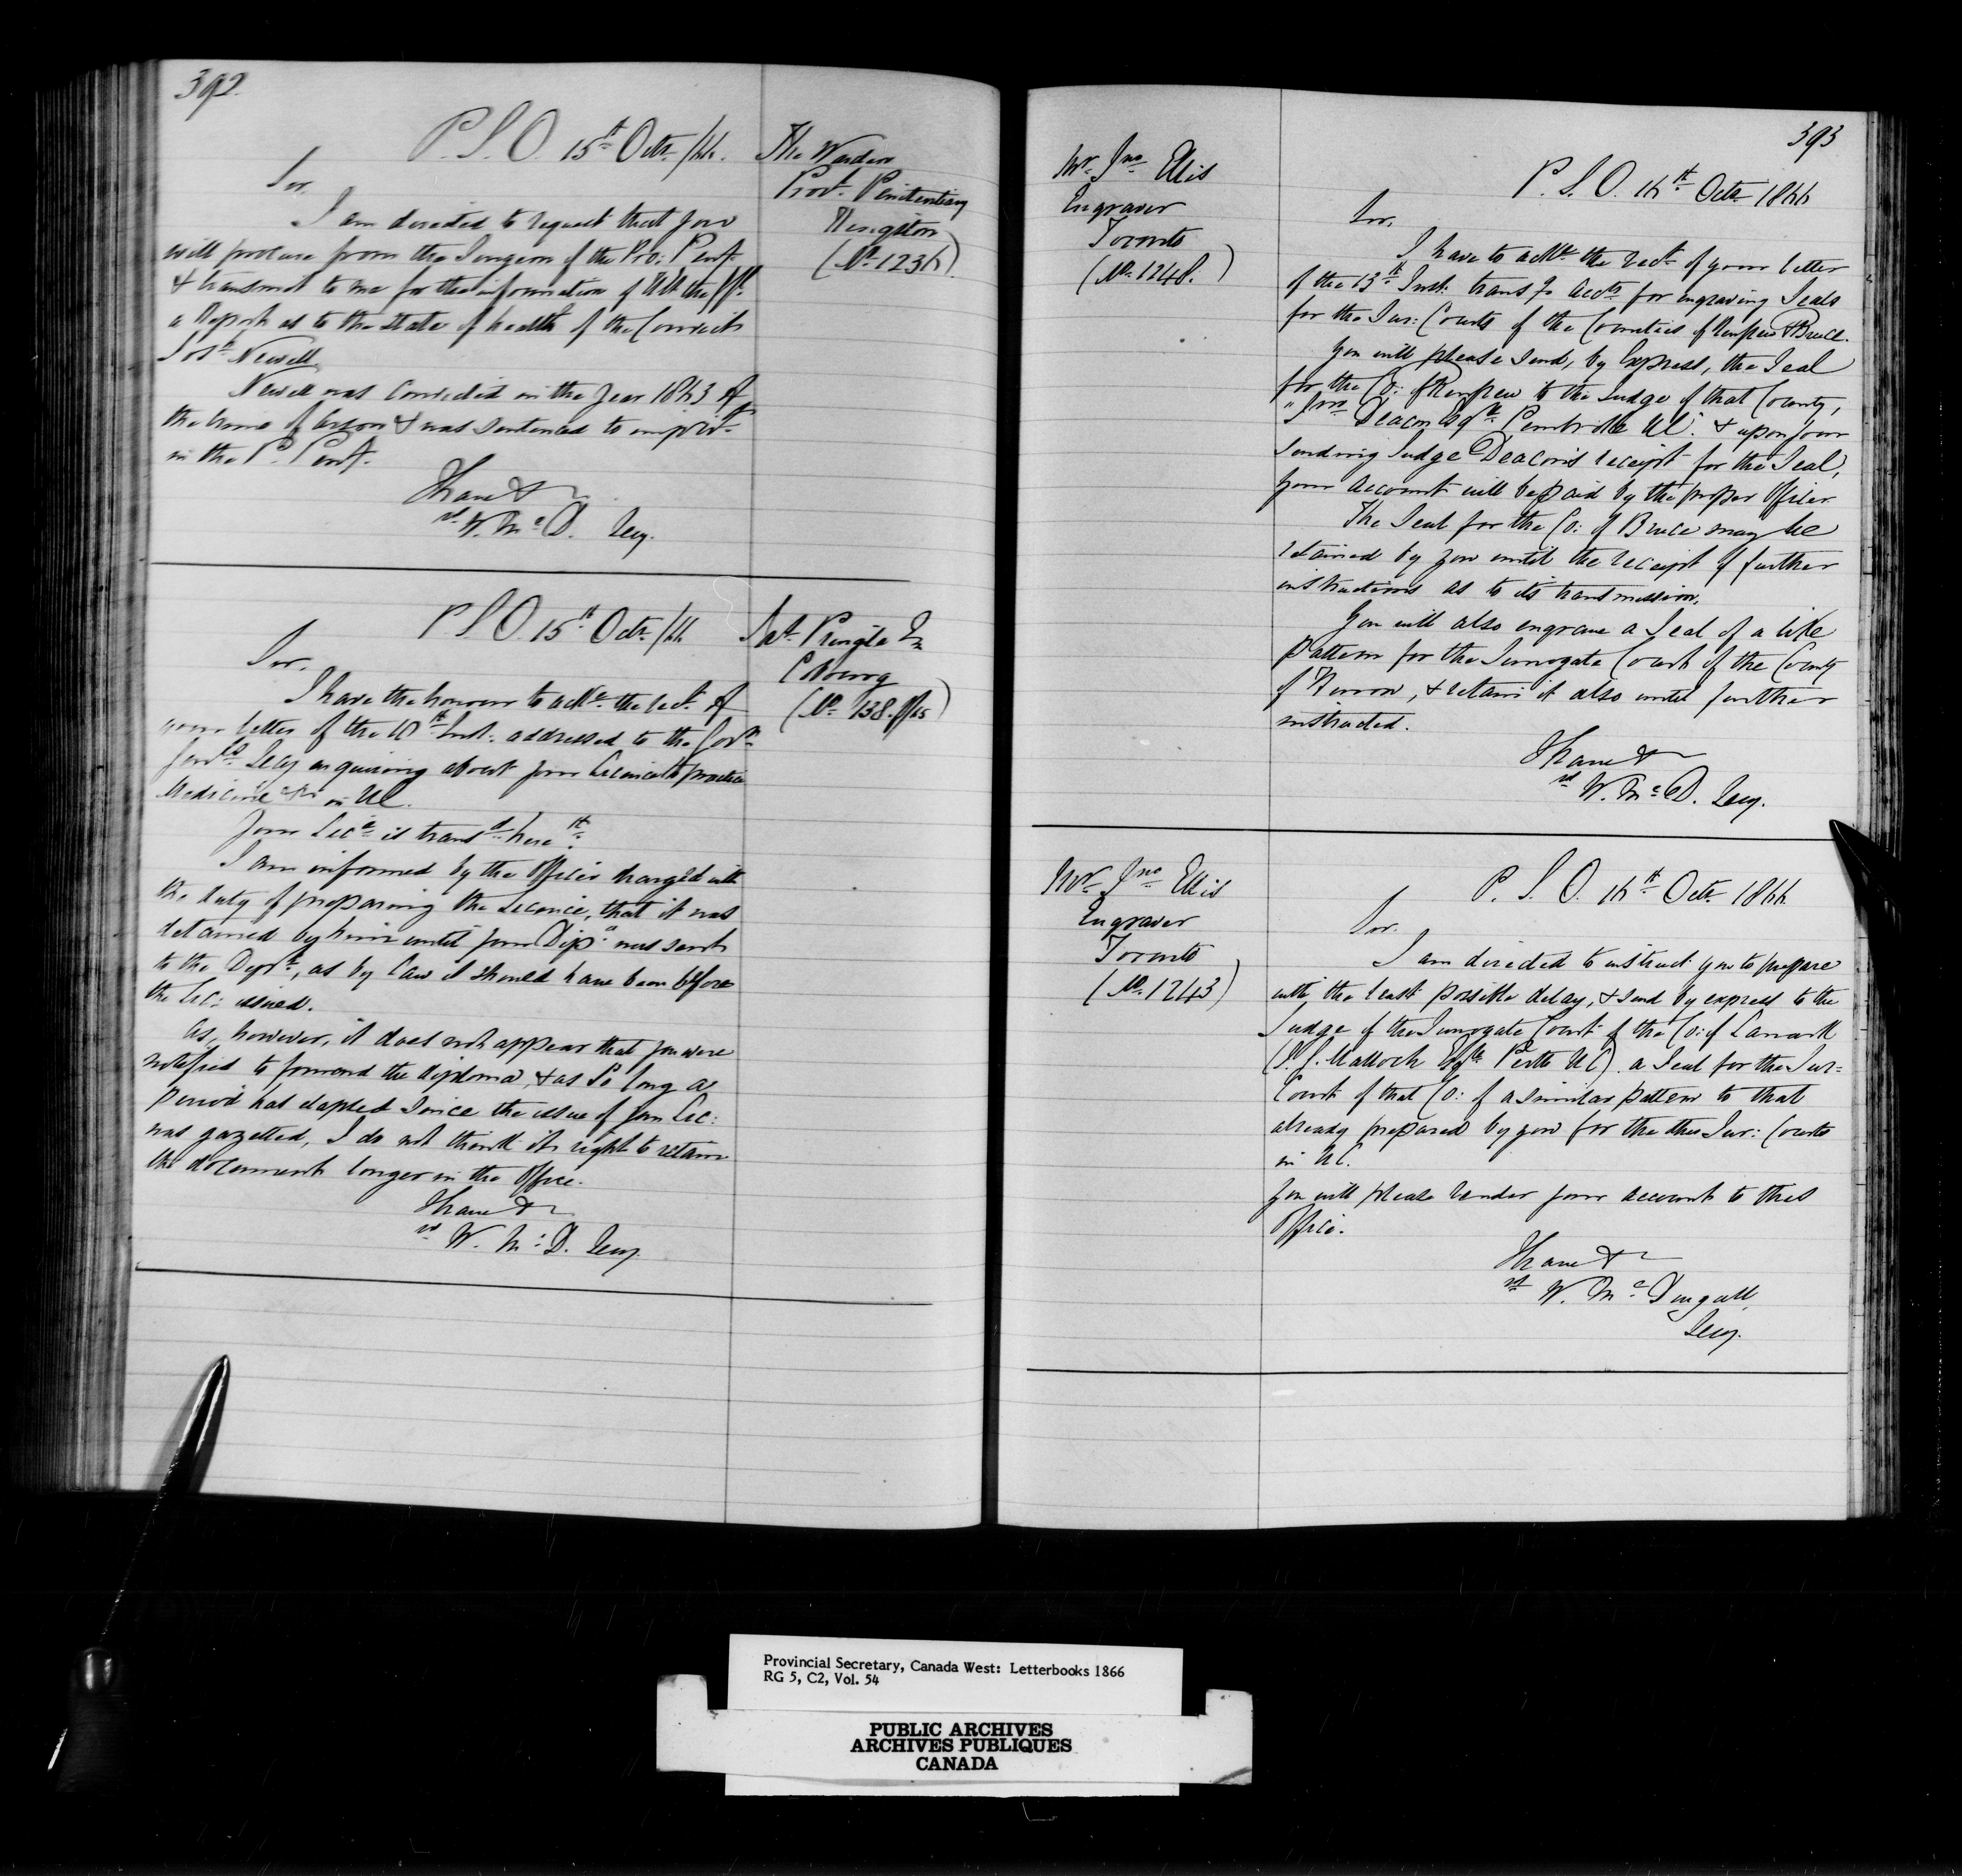 392
P. S. O. 15th Octr /66.
The Warden
Provl. Penitentiary
Kingston
(No. 1236)
Sir,
I am directed to request that you
will procure from the Surgeon of the Pro: Peny.
& transmit to me for the information of
a Report as to the state of health of the Convict
Josh. Newell
Newell was convicted in the year 1863 of
the crime of Arson & was sentenced to
in the P. Peny.
I have &c
sd. W. McD. Secy.
P. S. O. 15th Octr /66
Pringle
Cobourg
(No. 138. of/65)
Sir,
I have the honour to ackne. the rect. of
your letter of the 10th Inst. addressed to the Govr.
Genls. Secy enquiring about your Licence to practice
Medicine &c in UC.
Your Lice. is transd. herewth.
I am informed by the Officer charged with
the duty of preparing the Licence, that it was
detained by him until your Dipa. was sent
to the Dept., as by law it should have been before
the Lic: issued.
As, however, it does not appear that you were
notified to forward the diploma, & as so long a
period has elapsed since the issue of your Lic:
was gazetted, I do not think it right to retain
the document longer in the Office.
I have &c
sd. W. McD. Secy.
393
Mr. Jno. Ellis
Engraver
Toronto
(No. 1248.)
P. S. O. 16th Octr 1866
Sir,
I have to ackne. the rect. of your letter
of the 13th Inst. trans g acct. for engraving Seals
for the Sur: Courts of the Counties of Renfrew & Bruce.
You will please send, by Express, the Seal
for the Co: of Renfrew to the Judge of that County,
Jno. Deacon Esqre. Pembroke UC. & upon your
sending Judge Deacon's receipt for the Seal,
your account will be paid by the proper Officer
The Seal for the Co: of Bruce may be
retained by you until the receipt of further
instructions as to its transmission.
You will also engrave a Seal of a like
pattern for the Surrogate Court of the County
of Huron, & retain it also until further
instructed.
I have &c
sd W. McD. Secy.
Mr. Jno. Ellis
Engraver
Toronto
(No. 1243)
P. S. O. 16th Octr. 1866.
Sir.
I am directed to instruct you to prepare
with the least possible delay, & send by express to the
Judge of the Surrogate Court of the Co: of Lanark
(J. G. Malloch Esqre. Perth UC). a Seal for the Sur=
Court of that Co: of a similar pattern to that
already prepared by you for the other Sur: Courts
in UC.
You will please render your account to this
Office.
I have &c
sd W. McDougall
Secy.
Provincial Secretary, Canada West: Letterbooks 1866
RG 5, C2, Vol. 54
PUBLIC ARCHIVES
ARCHIVES PUBLIQUES
CANADA